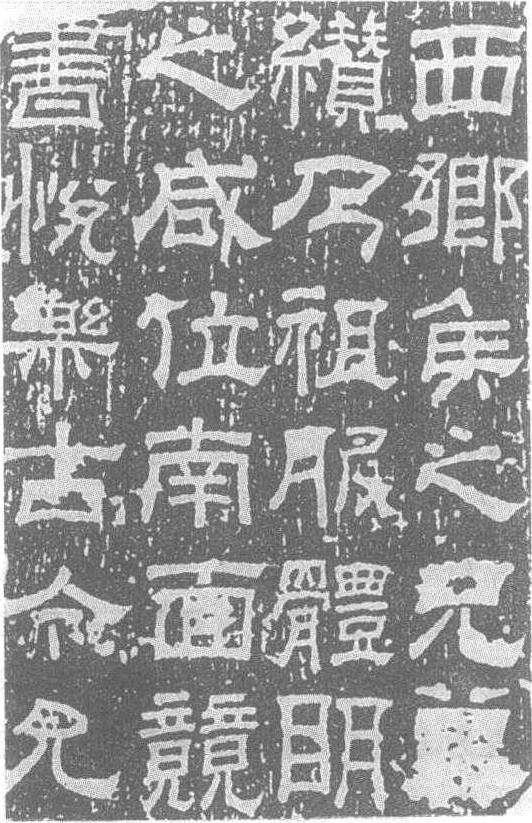 西鄉侯之兄
纘乃祖服體明
之咸位南面競
書悅樂古